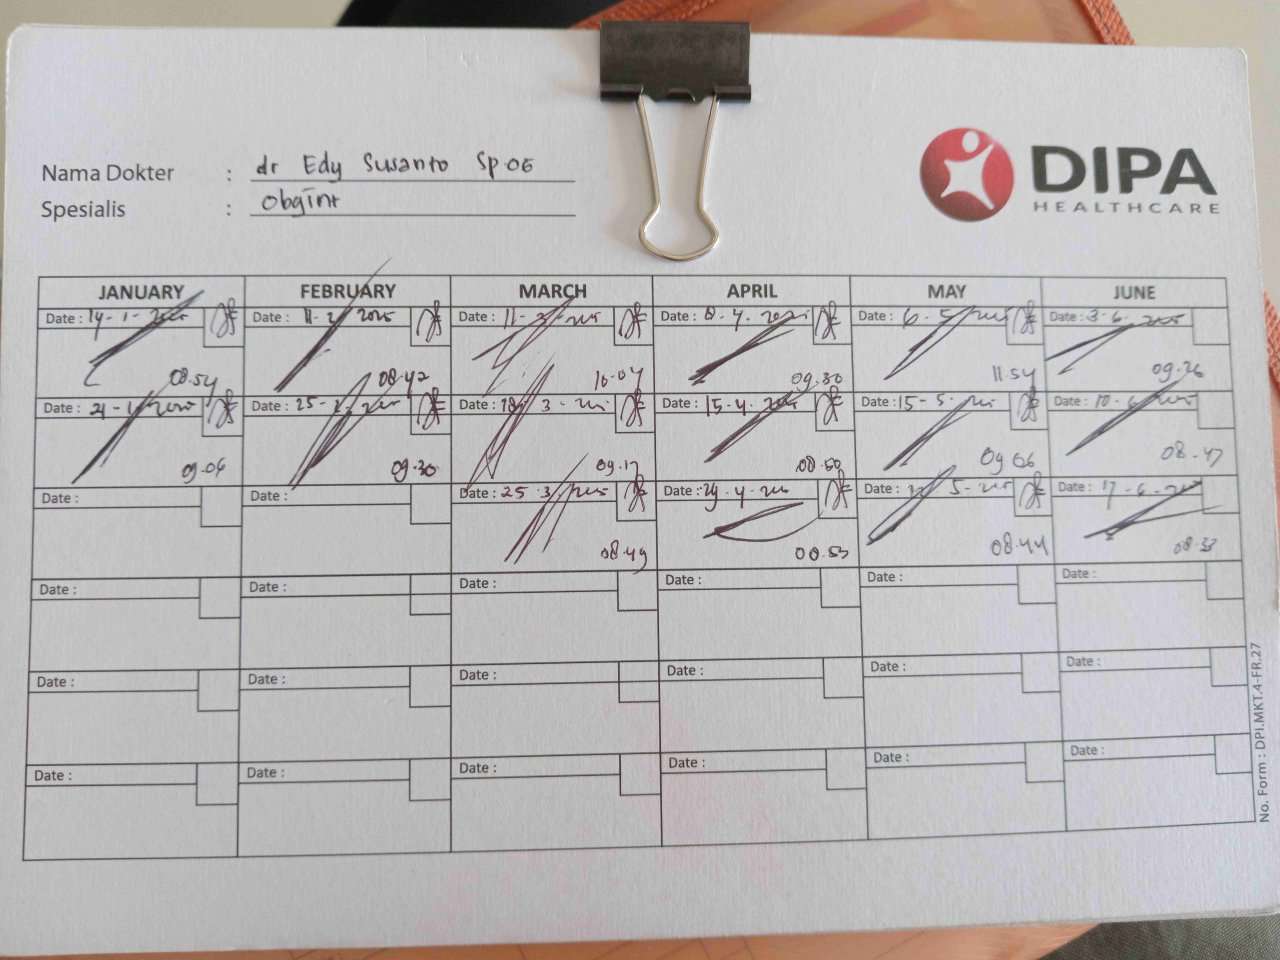 DIPA
HEALTHCARE
Nama Dokter : dr Edy Susanto Sp.OG
Spesialis : Obgin
JANUARY FEBRUARY MARCH APRIL MAY JUNE
Date : 14-1-2025 Date : 11-2-2025 Date : 11-3-2025 Date : 8-4-2025 Date : 6-5-2025 Date : 3-6-2025
08.54 08.42 10.04 09.30 11.54 09.26
Date : 21-1-2025 Date : 25-2-2025 Date : 18-3-2025 Date : 15-4-2025 Date : 15-5-2025 Date : 10-6-2025
09.06 09.30 09.17 08.50 09.06 08.47
Date : Date : Date : 25-3-2025 Date : 29-4-2025 Date : 5-2025 Date : 17-6-2025
08.49 08.53 08.44 08.33
Date : Date : Date : Date : Date : Date :
Date : Date : Date : Date : Date : Date :
Date : Date : Date : Date : Date : Date :
No. Form : DPI.MKT.4-FR.27